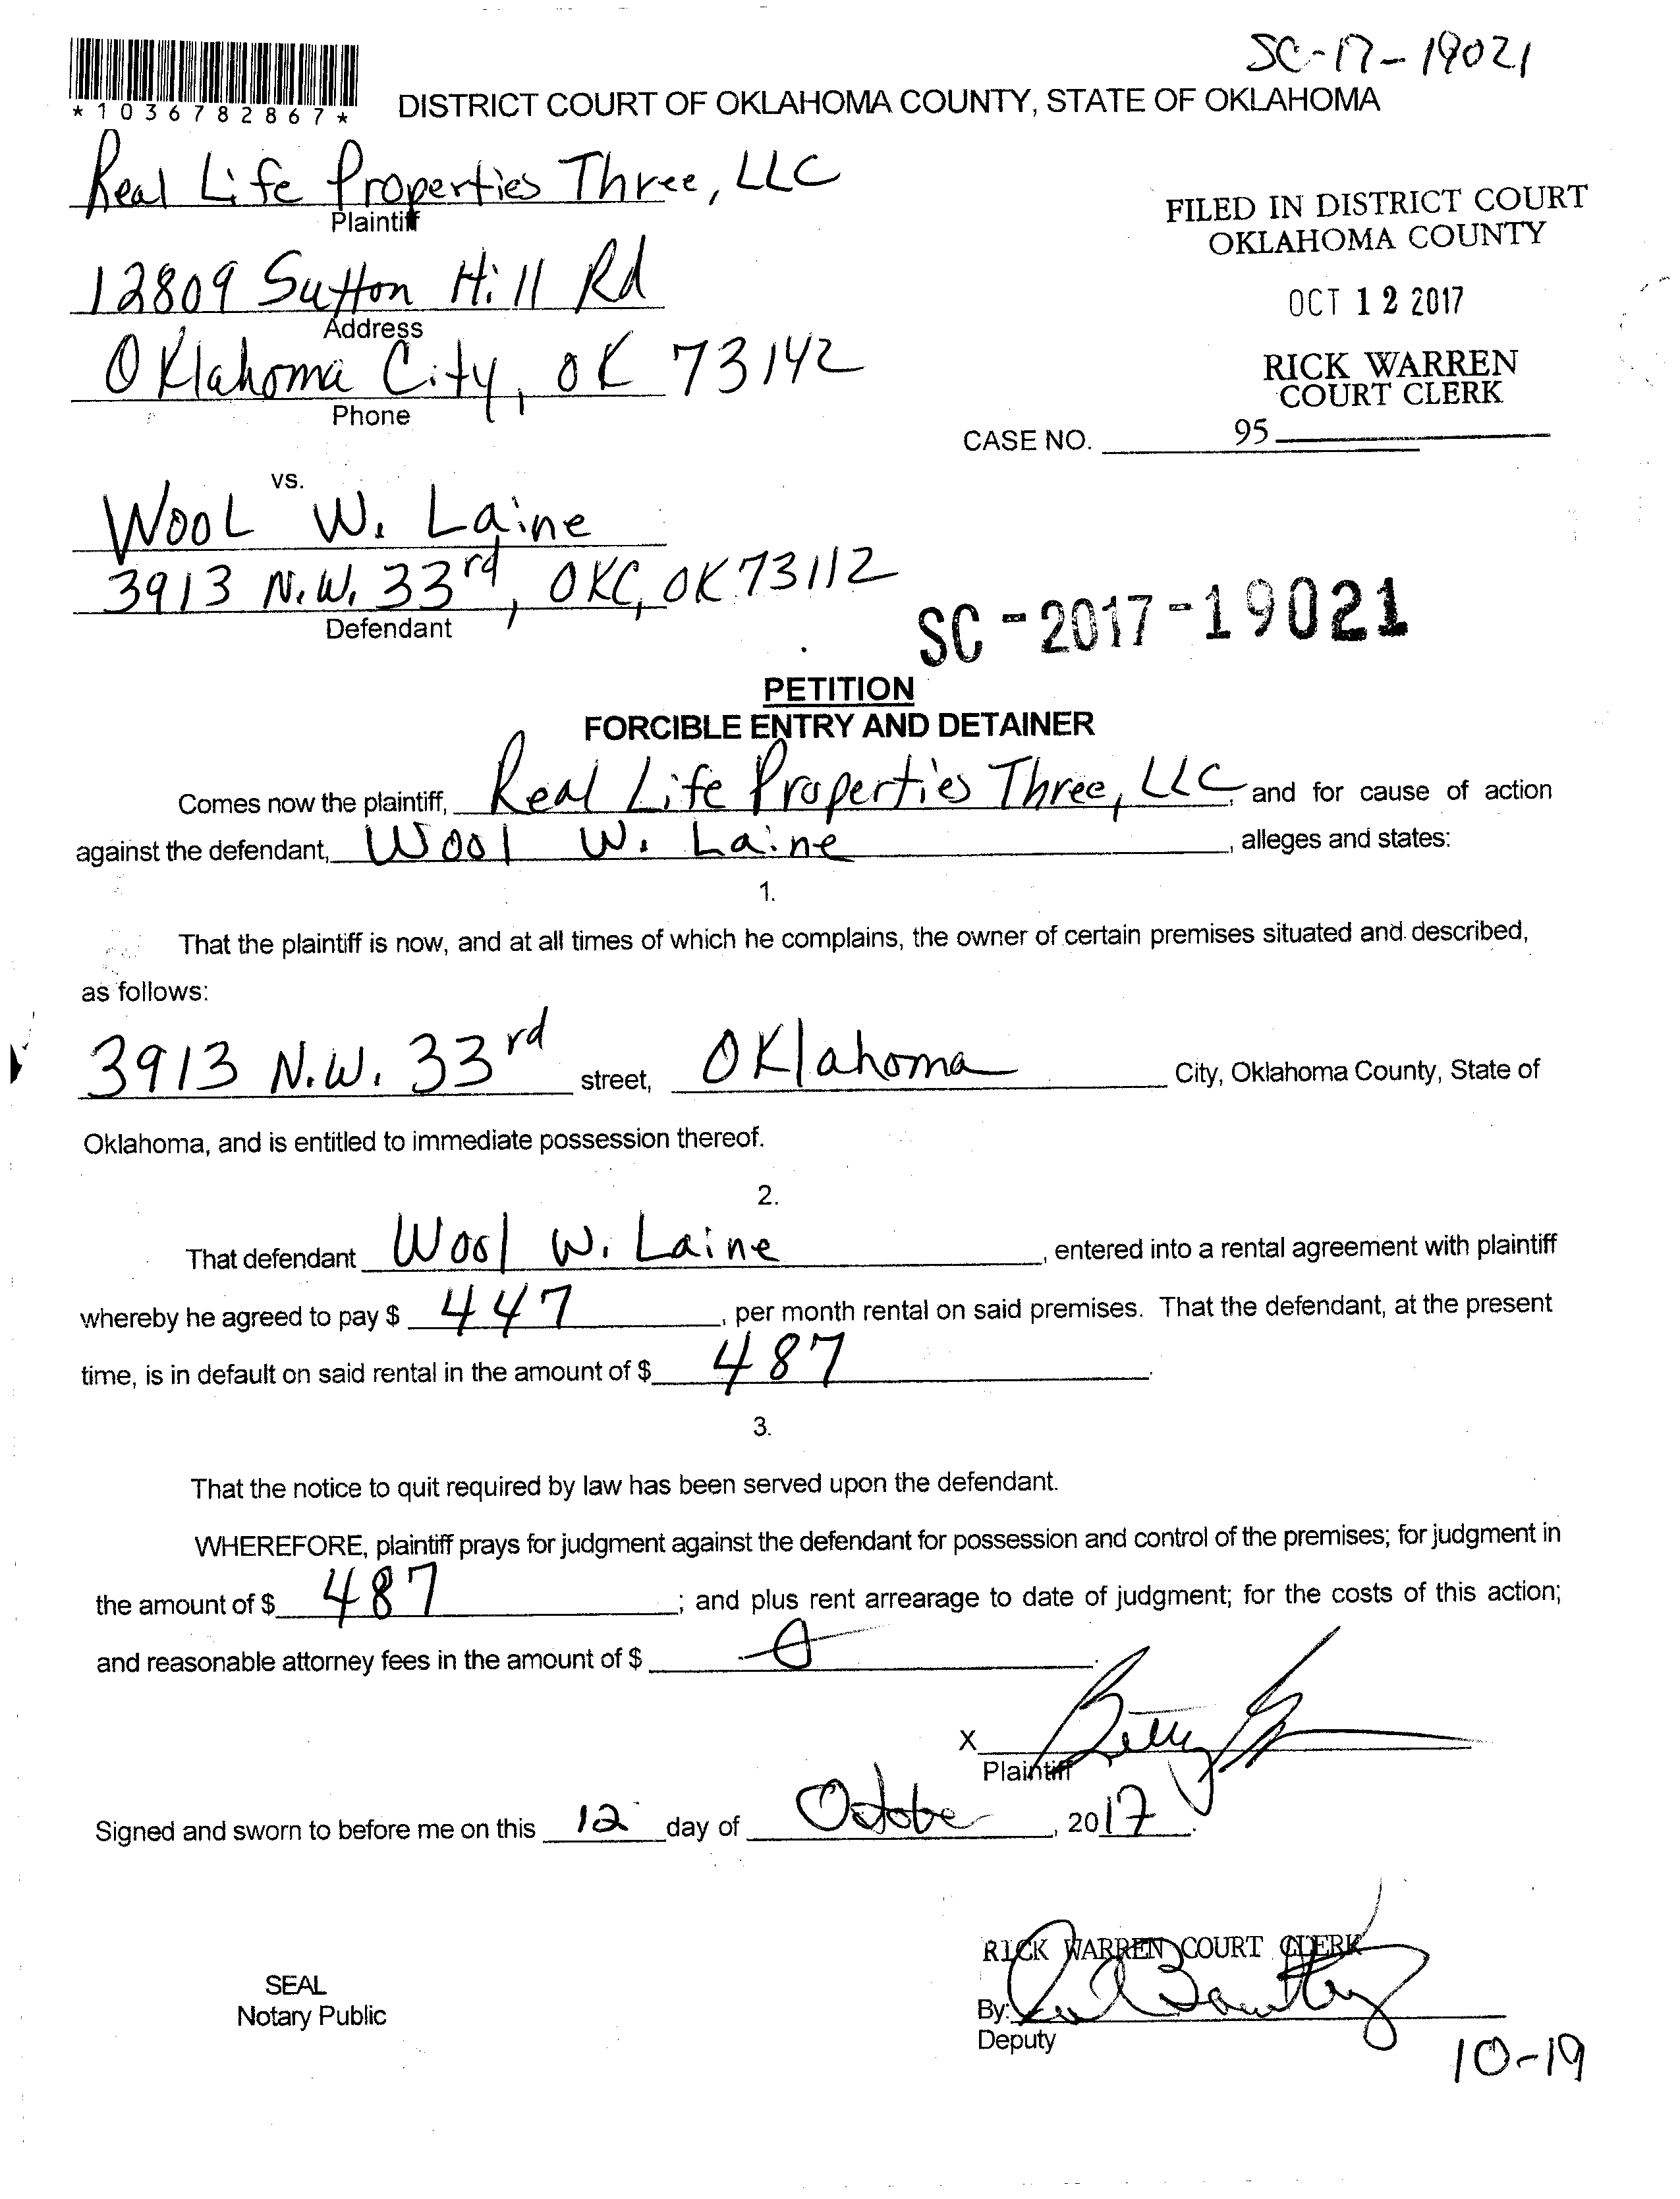 SC-17-19021
*1036782867*
DISTRICT COURT OF OKLAHOMA COUNTY, STATE OF OKLAHOMA
Real Life Properties Three, LLC
Plaintiff
FILED IN DISTRICT COURT
OKLAHOMA COUNTY
12809 Sutton Hill Rd
Address
OCT 12 2017
Oklahoma City, OK 73142
Phone
RICK WARREN
COURT CLERK
CASE NO. 95
vs.
Wool W. Laine
3913 N.W. 33rd, OKC, OK 73112
Defendant
SC-2017-19021
PETITION
FORCIBLE ENTRY AND DETAINER
Comes now the plaintiff, Real Life Properties Three, LLC, and for cause of action
against the defendant, Wool W. Laine, alleges and states:
1.
That the plaintiff is now, and at all times of which he complains, the owner of certain premises situated and described,
as follows:
3913 N.W. 33rd street, Oklahoma City, Oklahoma County, State of
Oklahoma, and is entitled to immediate possession thereof.
2.
That defendant Wool W. Laine, entered into a rental agreement with plaintiff
whereby he agreed to pay $ 447, per month rental on said premises. That the defendant, at the present
time, is in default on said rental in the amount of $ 487.
3.
That the notice to quit required by law has been served upon the defendant.
WHEREFORE, plaintiff prays for judgment against the defendant for possession and control of the premises; for judgment in
the amount of $ 487; and plus rent arrearage to date of judgment; for the costs of this action;
and reasonable attorney fees in the amount of $ 0.
X Billy
Plaintiff
Signed and sworn to before me on this 12 day of October, 2017.
RICK WARREN COURT CLERK
SEAL
Notary Public
By:
Deputy
10-19